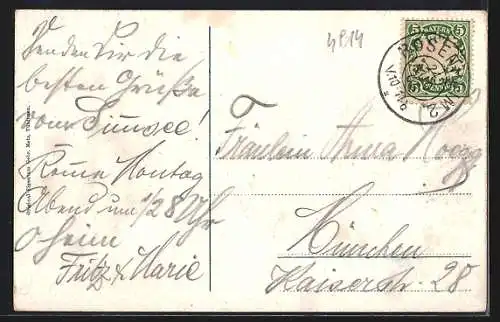 Senden Dir die
besten Grüße
vom Simsee!
Komme Montag
Abend um 1/2 8 Uhr
heim
Fritz & Marie
4814
BAYERN
5 5
ROSENHEIM 2
Fräulein Anna
München
Kaiserstr. 28